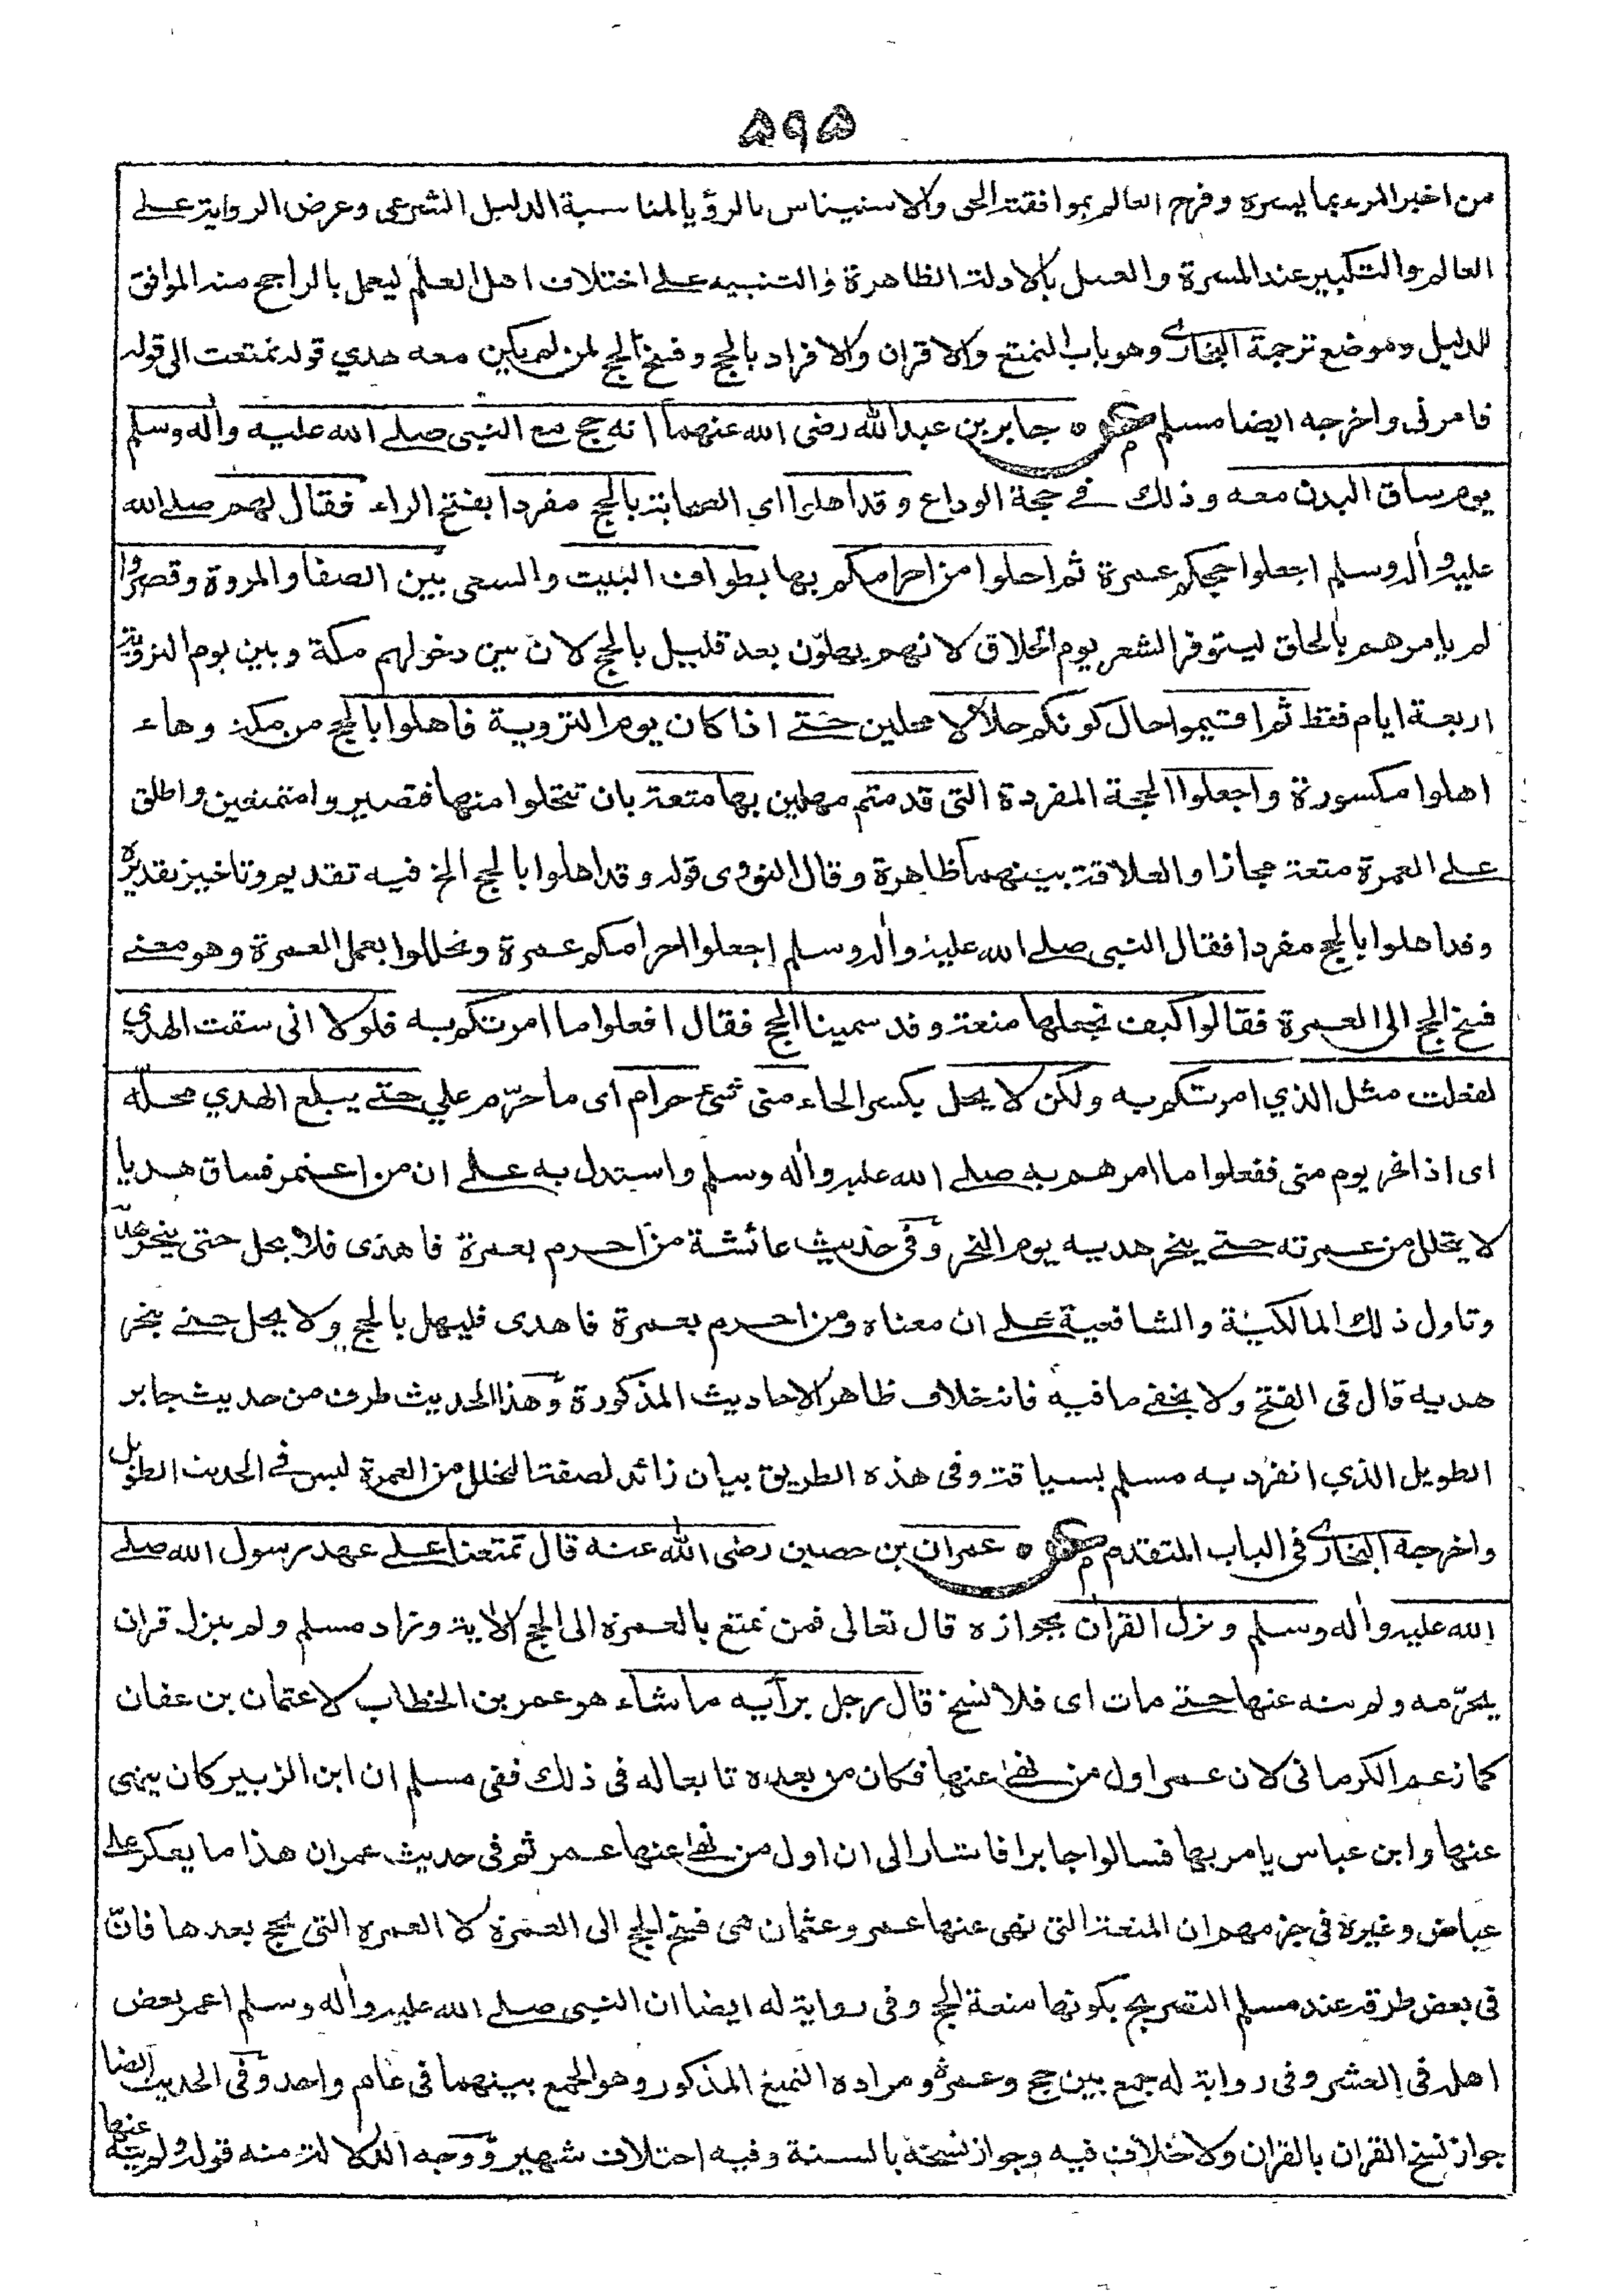 ۵۹۵
من اخبر المرء بما يسره وفرح العالم بموافقته الحق والاستيناس بالرؤيا لمناسبة الدليل الشرعى وعرض الرواية على
العالم والتكبير عند المسرة والعمل بالادلة الظاهرة والتنبيه على اختلاف اهل العلم ليعمل بالراجح منه الموافق
للدليل وموضع ترجمة البخارى وهو باب التمتع والاقران والافراد بالحج وفسخ الحج لمن لم يكن معه هدي قوله تمتعت الى قوله
فامرنى واخرجه ايضا مسلم ٥ جابر بن عبد الله رضى الله عنهما انه حج مع النبى صلى الله عليه وأله وسلم
يوم ساق البدن معه وذلك فى حجة الوداع وقد اهلوا اى الصحابة بالحج مفردا بفتح الراء فقال لهم صلى الله
عليه وأله وسلم اجعلوا حجكم عمرة ثم احلوا من احرامكم بها بطواف البيت والسعى بين الصفا والمروة وقصروا
لم يامرهم بالحلق ليتوفر الشعر يوم الحلاق لانهم يهلّون بعد قليل بالحج لان بين دخولهم مكة وبين يوم التروية
اربعة ايام فقط ثم اقيموا حال كونكم حلالا محلين حتى اذا كان يوم التروية فاهلوا بالحج من مكة وهاء
اهلوا مكسورة واجعلوا الحجة المفردة التى قدمتم مهلين بها متعة بان تتحلوا منها فتصيروا متمتعين واطلق
على العمرة متعة مجازا والعلاقة بينهما ظاهرة وقال النووى قوله وقد اهلوا بالحج الخ فيه تقديم وتاخير تقديره
وقد اهلوا بالحج مفردا فقال النبى صلى الله عليه وأله وسلم اجعلوا احرامكم عمرة وتحللوا بعمل العمرة وهو معنى
فسخ الحج الى العمرة فقالوا كيف نجعلها متعة وقد سمينا الحج فقال افعلوا ما امرتكم به فلولا انى سقت الهدي
لفعلت مثل الذي امرتكم به ولكن لا يحل بكسر الحاء منى شئ حرام اى ما حرّم علي حتى يبلغ الهدي محله
اى اذا نحر يوم منى ففعلوا ما امرهم به صلى الله عليه وأله وسلم واستدل به على ان من اعتمر فساق هديا
لا يتحلل من عمرته حتى ينحر هديه يوم النحر وفى حديث عائشة من احرم بعمرة فاهدى فلا يحل حتى ينحر هديه
وتاول ذلك المالكية والشافعية على ان معناه ومن احرم بعمرة فاهدى فليهل بالحج ولا يحل حتى ينحر
هديه قال فى الفتح ولا يخفى ما فيه فانه خلاف ظاهر الاحاديث المذكورة وهذا الحديث طرف من حديث جابر
الطويل الذي انفرد به مسلم بسياقته وفى هذه الطريق بيان زائد لصفة التحلل من العمرة ليس فى الحديث الطويل
واخرجه البخارى فى الباب المتقدم ٥ عمران بن حصين رضى الله عنه قال تمتعنا على عهد رسول الله صلى
الله عليه وأله وسلم ونزل القران بجوازه قال تعالى فمن تمتع بالعمرة الى الحج الاية وزاد مسلم ولم ينزل قران
يحرّمه ولم ينه عنها حتى مات اى فلا نسخ قال رجل برأيه ما شاء هو عمر بن الخطاب لا عثمان بن عفان
كما زعم الكرمانى لان عمر اول من نهى عنها فكان من بعده تابعا له فى ذلك ففى مسلم ان ابن الزبير كان ينهى
عنها وابن عباس يامر بها فسالوا جابرا فاشار الى ان اول من نهى عنها عمر ثم فى حديث عمران هذا ما يعكر على
عياض وغيره فى جزمهم ان المتعة التى نهى عنها عمر وعثمان هى فسخ الحج الى العمرة لا العمرة التى يحج بعدها فانّ
فى بعض طرقه عند مسلم التصريح بكونها متعة الحج وفى رواية له ايضا ان النبى صلى الله عليه وأله وسلم اعمر بعض
اهله فى العشر وفى رواية له جمع بين حج وعمرة ومراده التمتع المذكور وهو الجمع بينهما فى عام واحد وفى الحديث ايضا
جواز نسخ القران بالقران ولا خلاف فيه وجواز نسخه بالسنة وفيه اختلاف شهير ووجه الدلالة منه قوله ولم ينه عنها